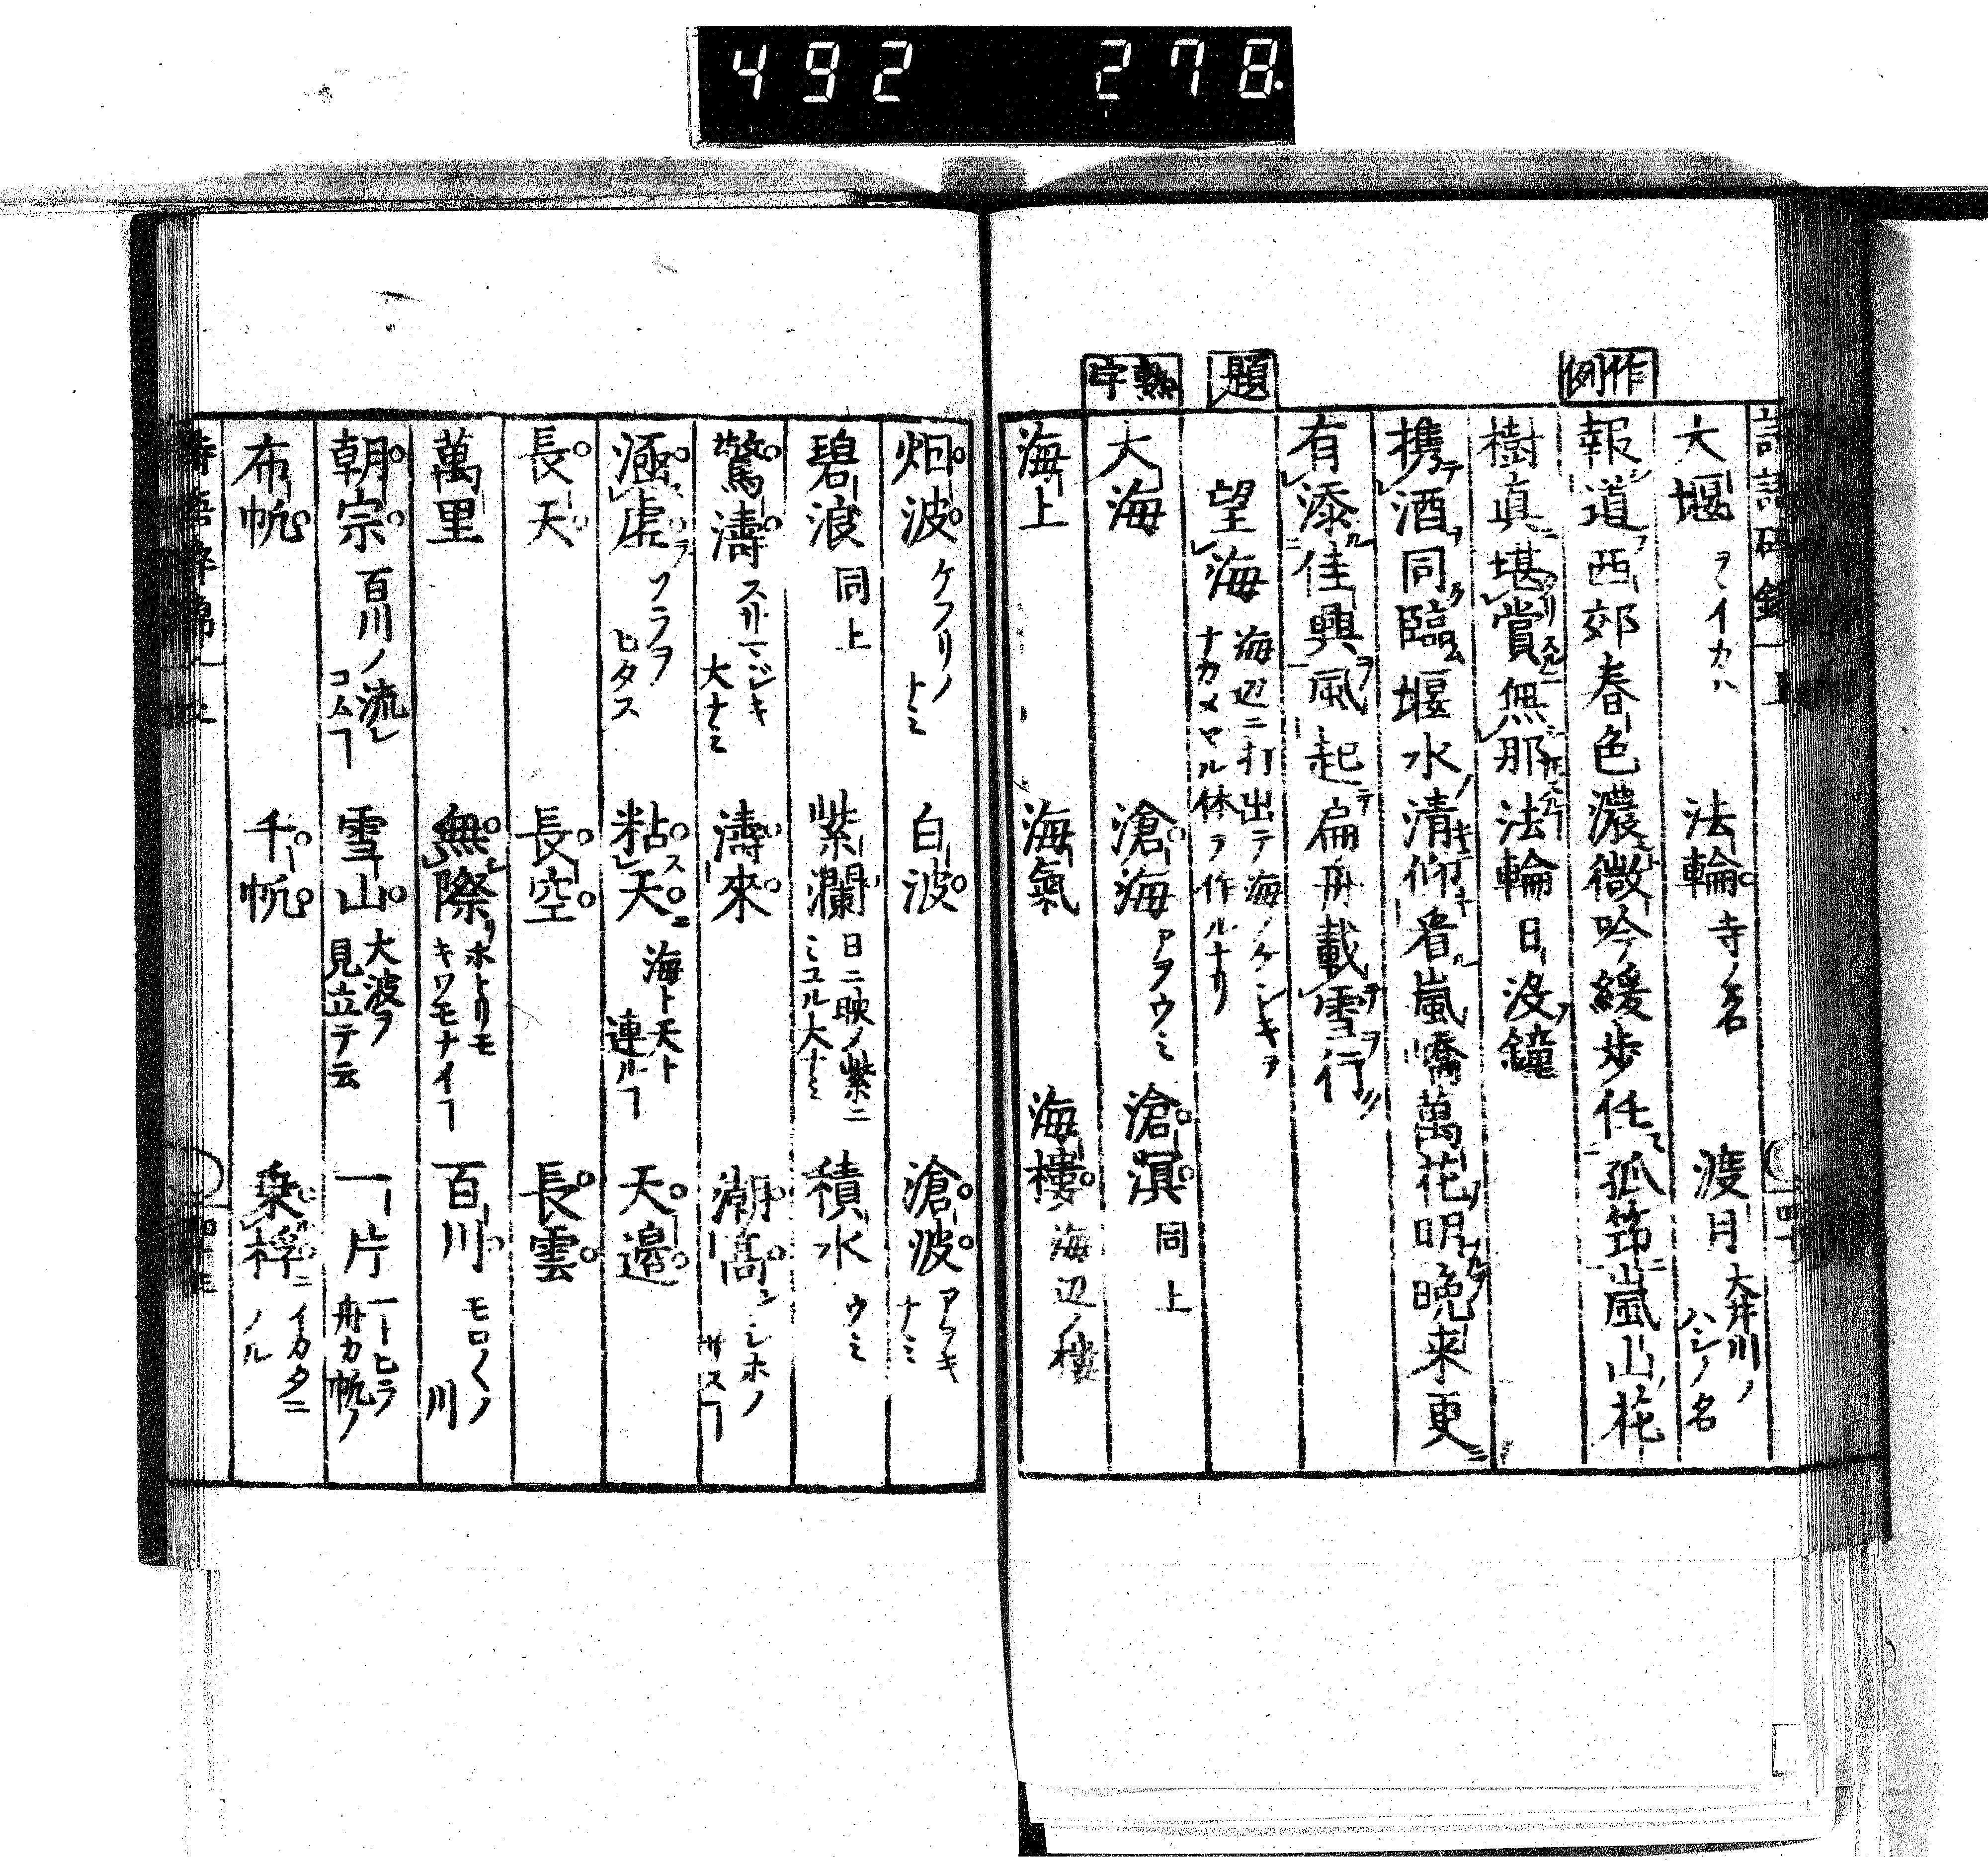 492 278
大堰 ヲヽイカハ 法輪 寺ノ名 渡月 大井川ノハシノ名
作例
報道西郊春色濃微吟緩歩任孤筇嵐山花
樹真堪賞無那法輪日没鐘
携酒同臨堰水清仰看嵐嶠萬花明晩来更
有添佳興風起扁舟載雪行
題
望海 海辺ニ打出テ海ノケシキヲナカメヤル体ヲ作ルナリ
熟字
大海 滄海 アヲウミ 滄溟 同上
海上 海氣 海樓 海辺ノ樓
烟波 ケフリノナミ 白波 滄波 アヲキナミ
碧浪 同上 紫瀾 日ニ映ノ紫ニミユル大ナミ 積水 ウミ
驚濤 スサマシキ大ナミ 濤來 潮高 シホノサスヿ
涵虚 ソラヲヒタス 粘天 海ト天ト連ルヿ 天邊
長天 長空 長雲
萬里 無際 ホトリモキワモナイヿ 百川 モロ〱ノ川
朝宗 百川ノ流レコムヿ 雪山 大波ヲ見立テ云 一片 一トヒラ舟カ帆ノ
布帆 千帆 乗桴 イカタニノル